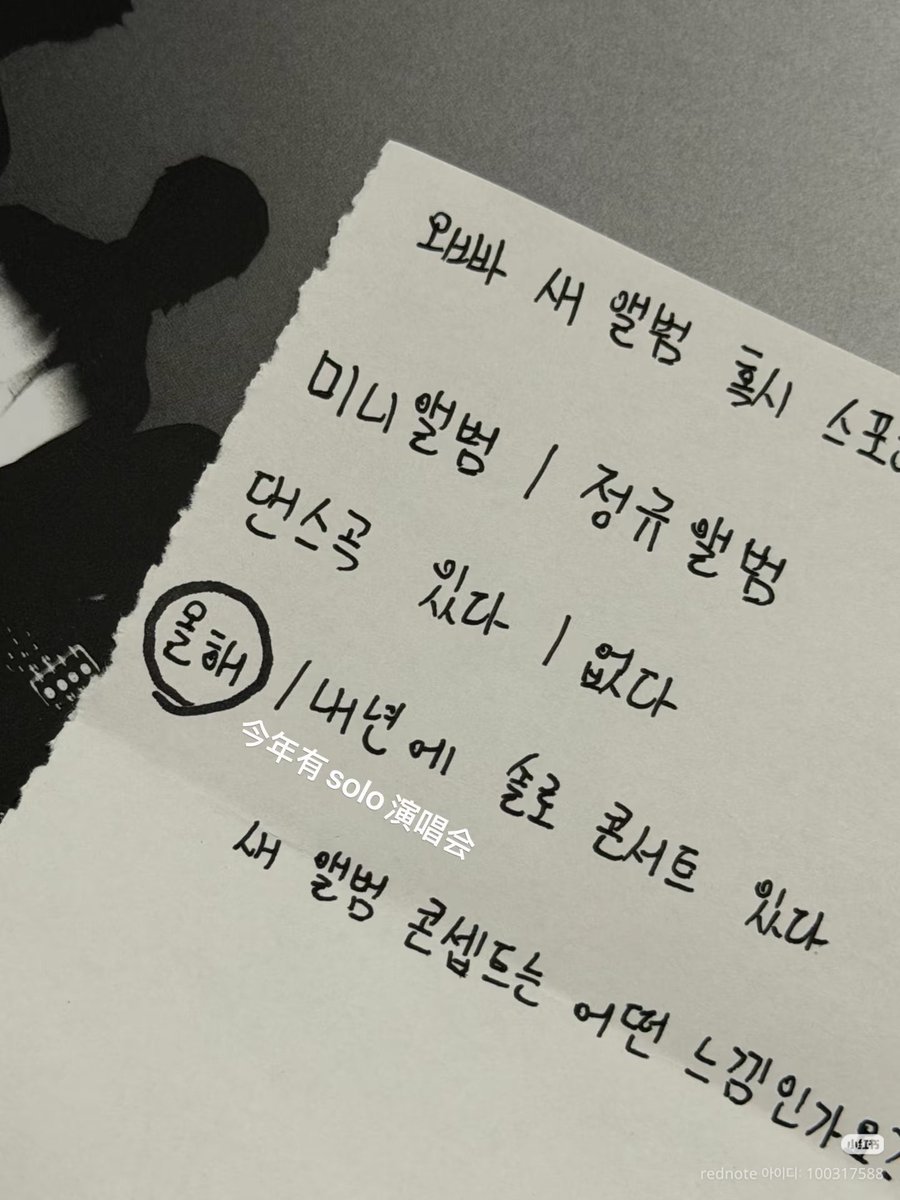 오빠 새 앨범 혹시 스포
미니앨범 / 정규 앨범
댄스곡 있다 / 없다
올해 / 내년에 솔로 콘서트 있다
今年有solo演唱会
새 앨범 콘셉트는 어떤 느낌인가요?
小红书
rednote 아이디: 100317588